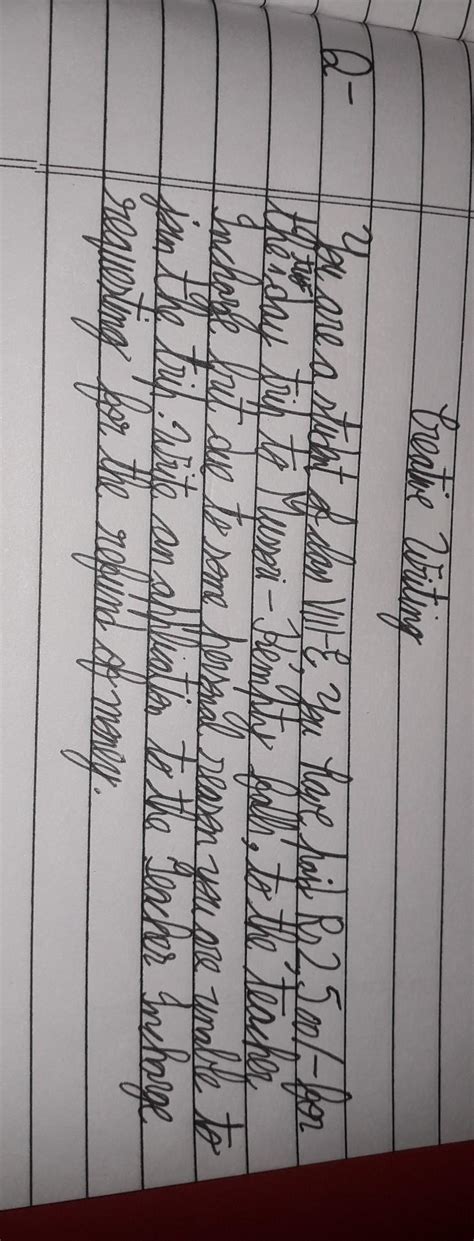 Creative Writing
Q- You are a student of class VIII-E, you have paid Rs 2,500/- for
the two day trip to Mussori - Kempty fall, to the Teacher
Incharge but due to some personal reason you are unable to
join the trip. Write an application to the Teacher Incharge
requesting for the refund of money.